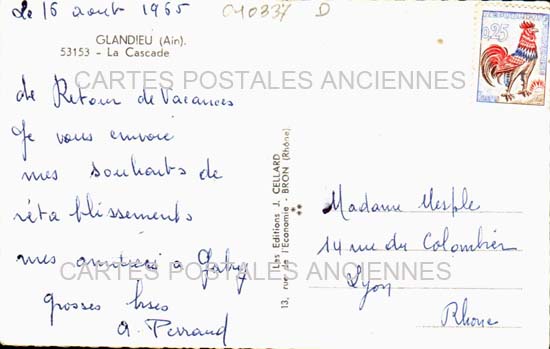 Le 16 aout 1965
C40337 D
GLANDIEU (Ain).
53153 - La Cascade
CARTES POSTALES ANCIENNES
0,25
de Retour de Vacances
Je vous envoie
mes souhaits de
réta blissements
mes amitiés a Gaby
grosses bises
a. Perraud
CARTES POSTALES ANCIENNES
Les Editions J. CELLARD
13, rue de l'Economie - BRON (Rhône)
Madame Mesple
14 rue du Colombier
Lyon
Rhone